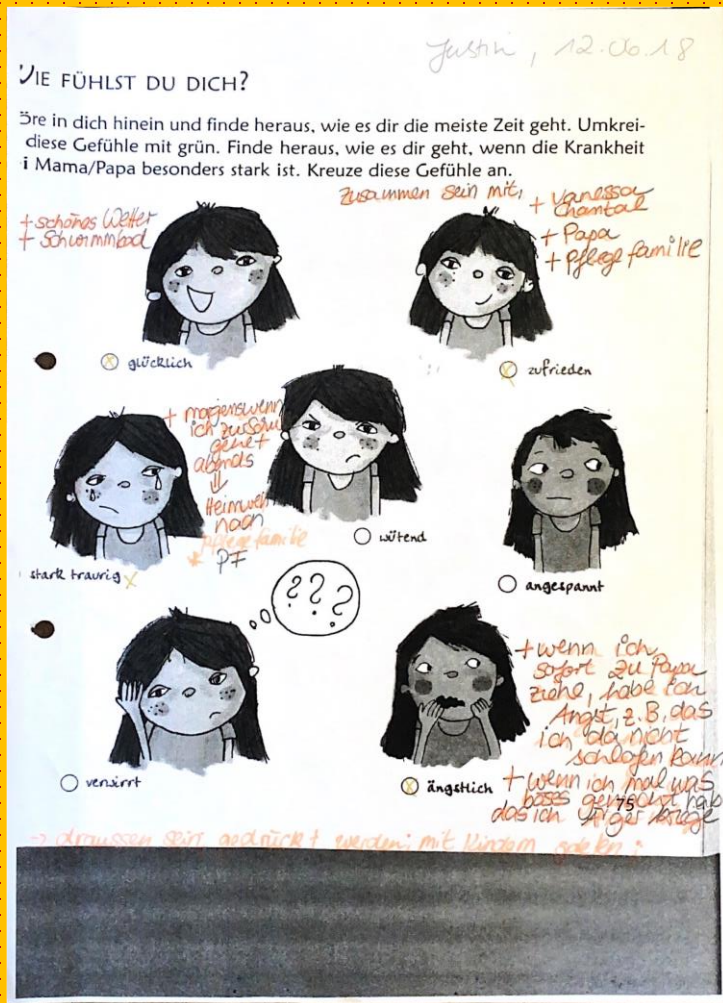 Justin, 12.06.18
WIE FÜHLST DU DICH?
öre in dich hinein und finde heraus, wie es dir die meiste Zeit geht. Umkrei-
diese Gefühle mit grün. Finde heraus, wie es dir geht, wenn die Krankheit
i Mama/Papa besonders stark ist. Kreuze diese Gefühle an.
+ schönes Wetter
+ Schwimmbad
zusammen sein mit,
+ Vanessa
Chantal
+ Papa
+ Pflegefamilie
glücklich
zufrieden
+ morgens wenn
ich zur Schu
gehet
abends
⇓
Heimweh
nach
Pflegefamilie
PF
wütend
stark traurig
angespannt
???
verwirrt
+ wenn ich
sofort zu Papa
ziehe, habe ich
Angst, z.B. das
ich da nicht
schlafen kann
ängstlich
+ wenn ich mal was
böses gemacht hab
das ich Ärger kriege
75
→ draussen sein gedrückt werden; mit Kindern spielen;